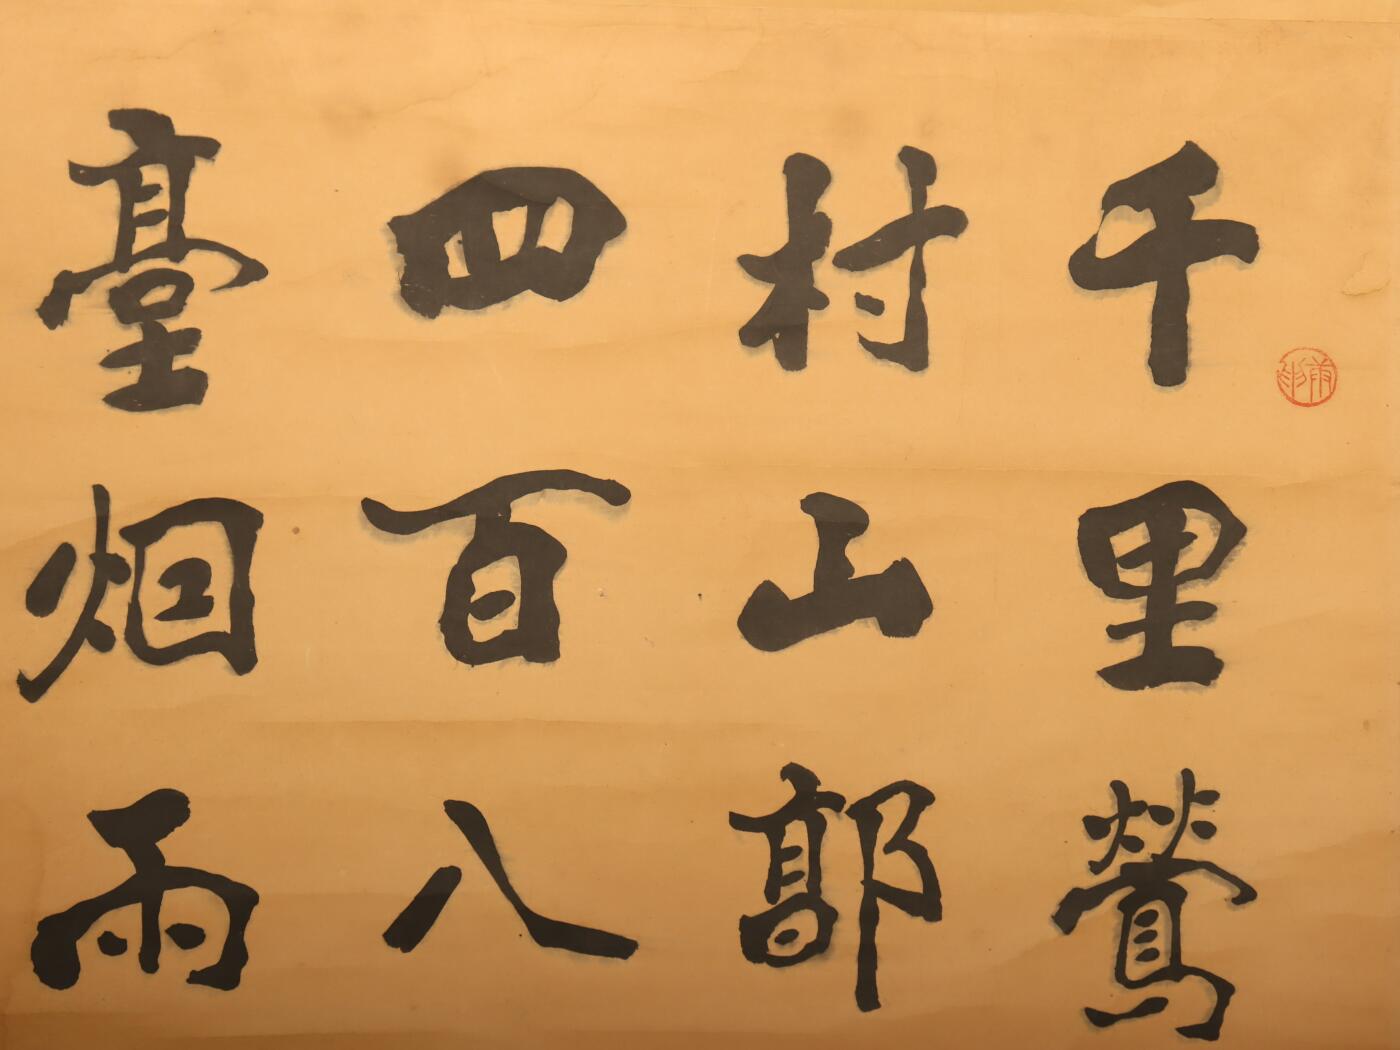 千里鶯
村山郭
四百八
臺烟雨